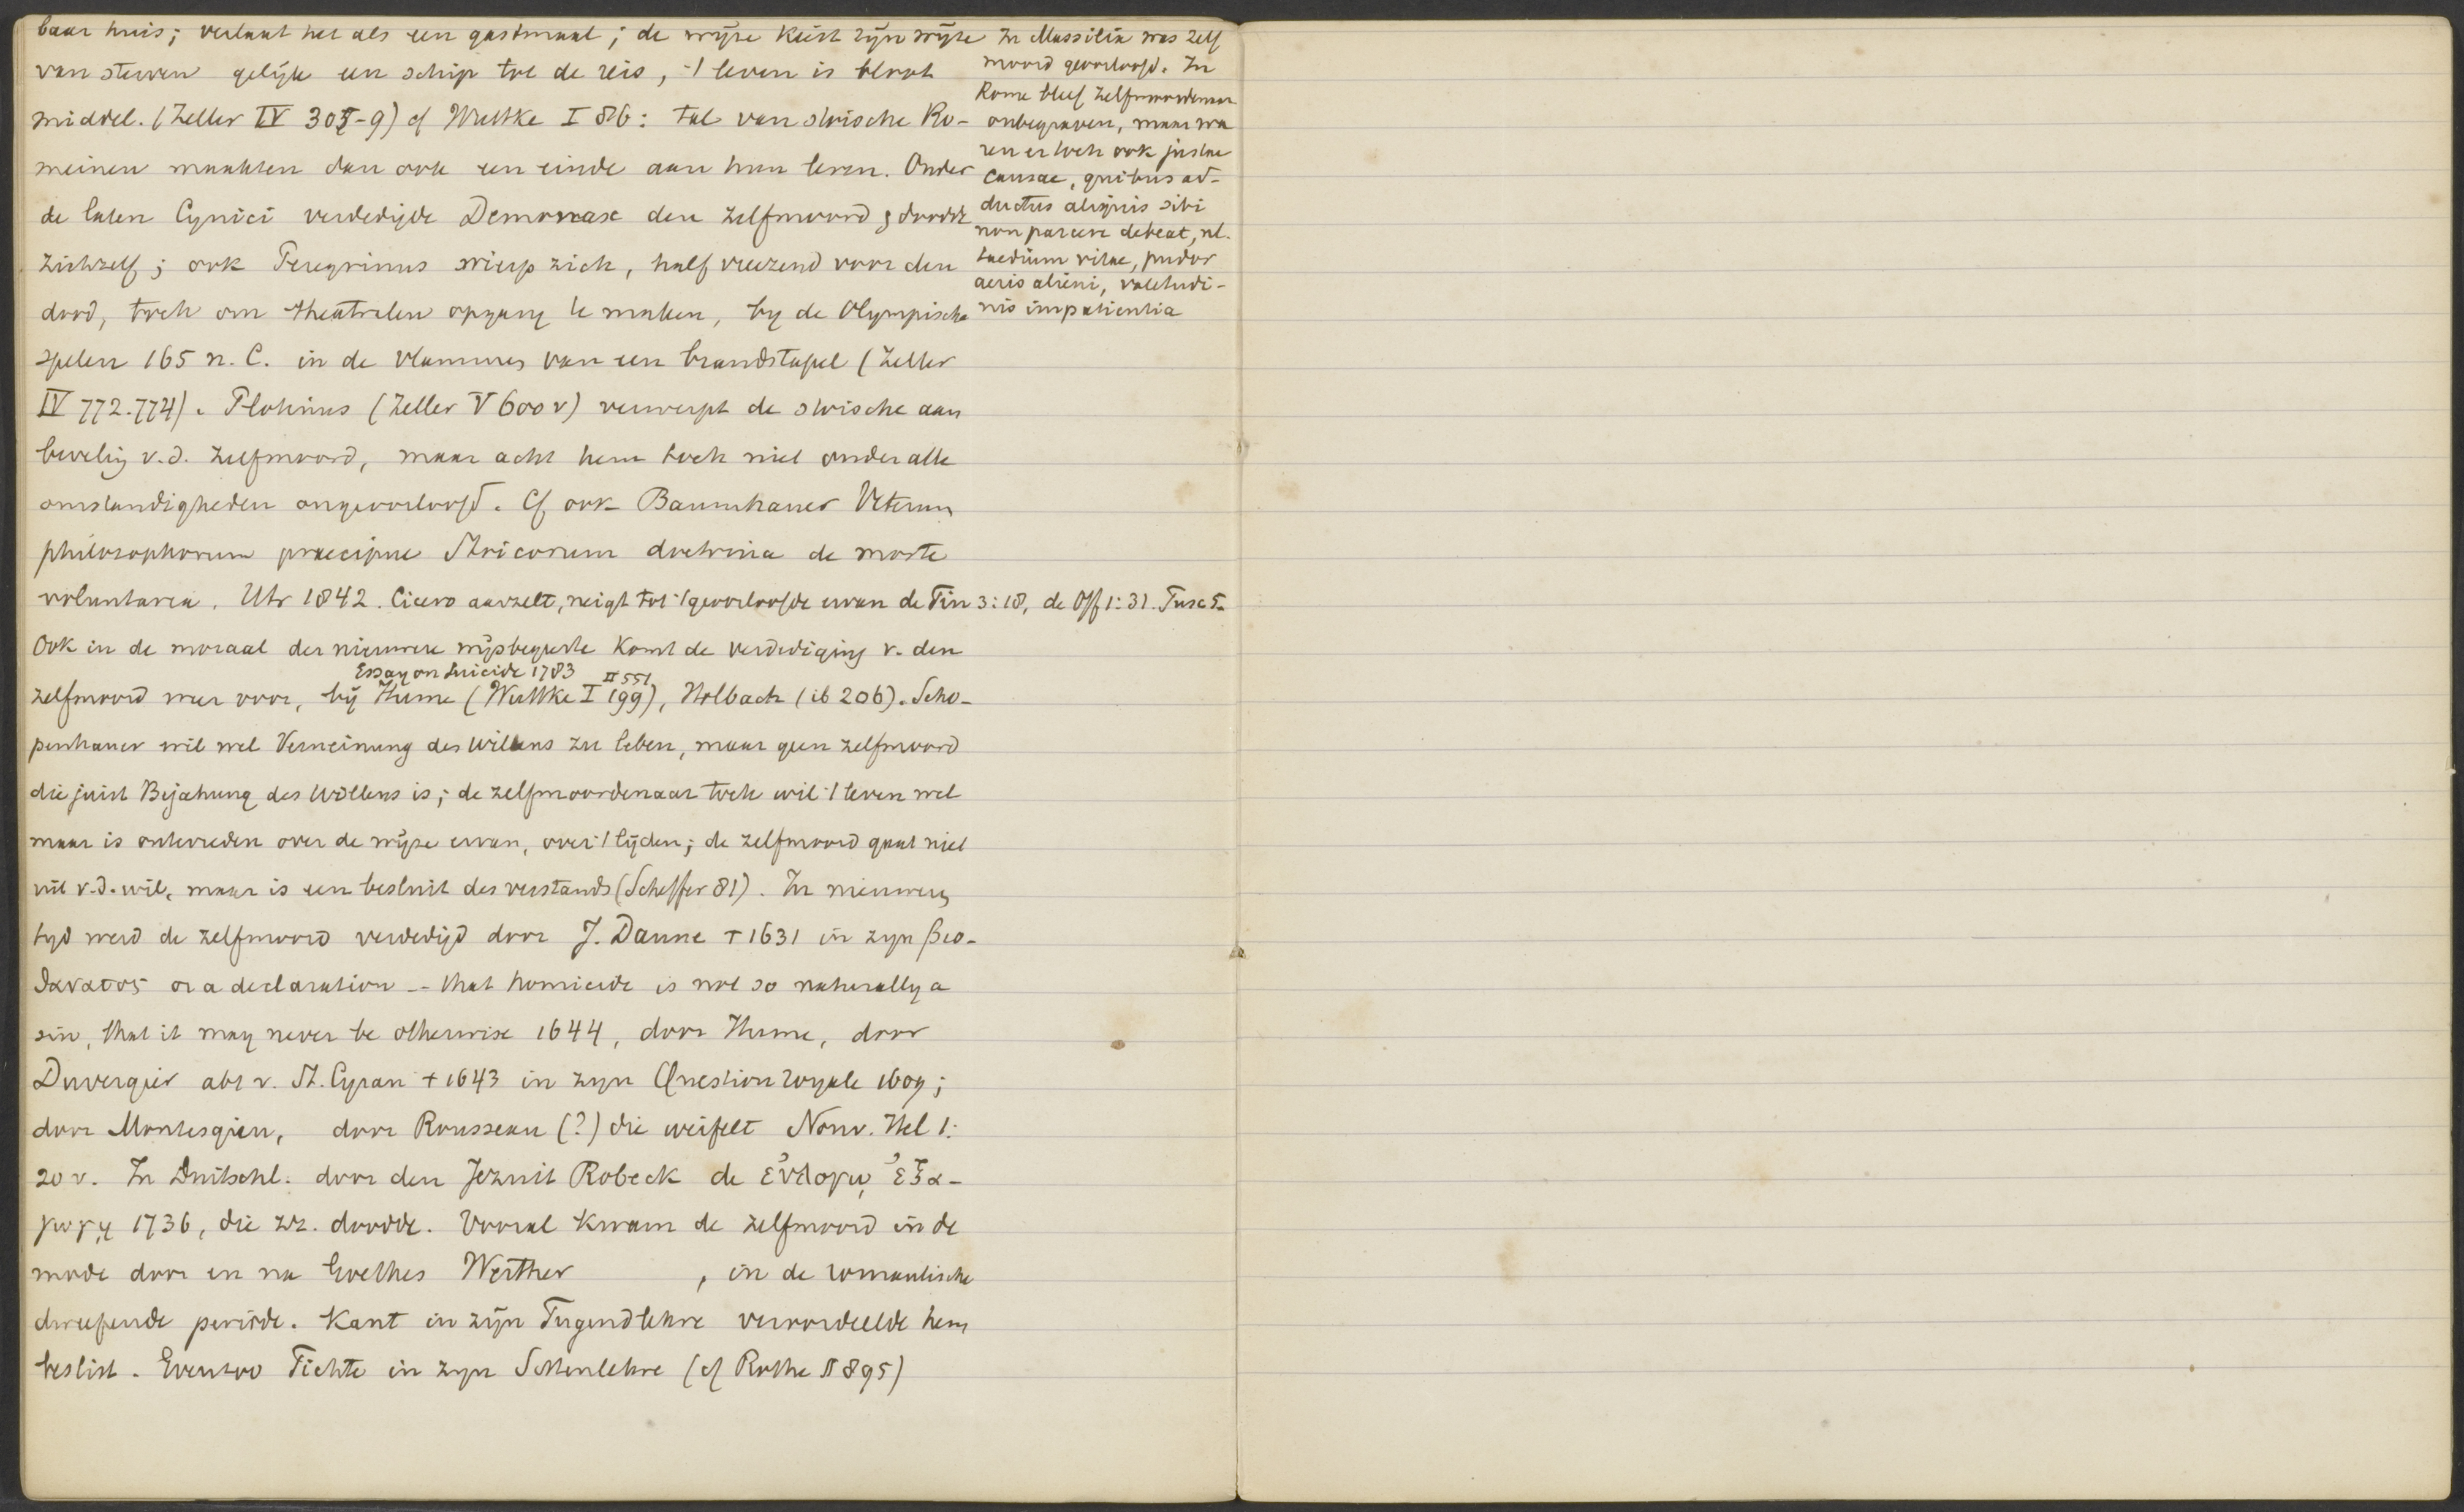 baar huis; verlaat het als een gastmaal; de wijze kiest zijn wijze
van sterven gelijk een schip tot de reis, 't leven is bloot
middel. (Zeller IV 305-9) cf Wuttke I 86: tal van stoische Ro-
meinen maakten dan ook een einde aan hun leven. Onder
de laten Cynici verdedigde Demonax den zelfmoord & doodde
zichzelf; ook Peregrinus wierp zich, half vreezend voor den
dood, toch om theatralen opgang te maken, by de Olympische
spelen 165 n. C. in de vlammen van een brandstapel (Zeller
IV 772.774). Plotinus (Zeller V 600 v) verwerpt de stoische aan
bevelig v.d. zelfmoord, maar acht hem toch niet onder alle
omstandigheden ongeoorloofd. Cf ook Baumhauer Veterum
philosophorum praecipue Stoicorum doctrina de morte
voluntaria. Utr 1842. Cicero aarzelt, neigt tot 't geoorloofde ervan de Fin 3:18, de Off 1:31. Tusc 5.
Ook in de moraal der nieuwere wijsbegeerte komt de verdediging v. den
Essay on Suicide 1783 II 551
zelfmoord weer voor, bij Hume (Wuttke I 199), Holbach (ib 206). Scho-
penhauer wil wel Verneinung des Willens zu leben, maar geen zelfmoord
die juist Bejahung des Willens is; de zelfmoordenaar toch wil 't leven wel
maar is ontevreden over de wijze ervan, over 't lijden; de zelfmoord gaat niet
uit v.d. wil, maar is een besluit des verstands (Scheffer 81). In nieuwere
tyd werd de zelfmoord verdedigd door J. Donne † 1631 in zyn βιο-
θανατος or a declaration -- that homicide is not so naturally a
sin, that it may never be otherwise 1644, door Hume, door
Duvergier abt v. St. Cyran † 1643 in zyn Question royale 1609;
door Montesquieu, door Rousseau (?) die weifelt Nouv. Hel 1:
20 v. In Duitschl. door den Jezuit Robeck de ἐυλογῳ ἐξα-
γωγῃ 1736, die zz. doodde. Vooral kwam de zelfmoord in de
mode door en na Goethes Werther , in de romantische
dweepende periode. Kant in zijn Tugendlehre veroordeelde hem
beslist. Evenzoo Fichte in zyn Sittenlehre (cf Rothe II 895)
In Massilia was zelf
moord geoorloofd. In
Rome bleef zelfmoordenaar
onbegraven, maar wa
ren er toch ook justae
causae, quibus ad-
ductus aliquis sibi
non parcere debeat, nl.
taedium vitae, pudor
aeris alieni, valetudi-
nis impatientia